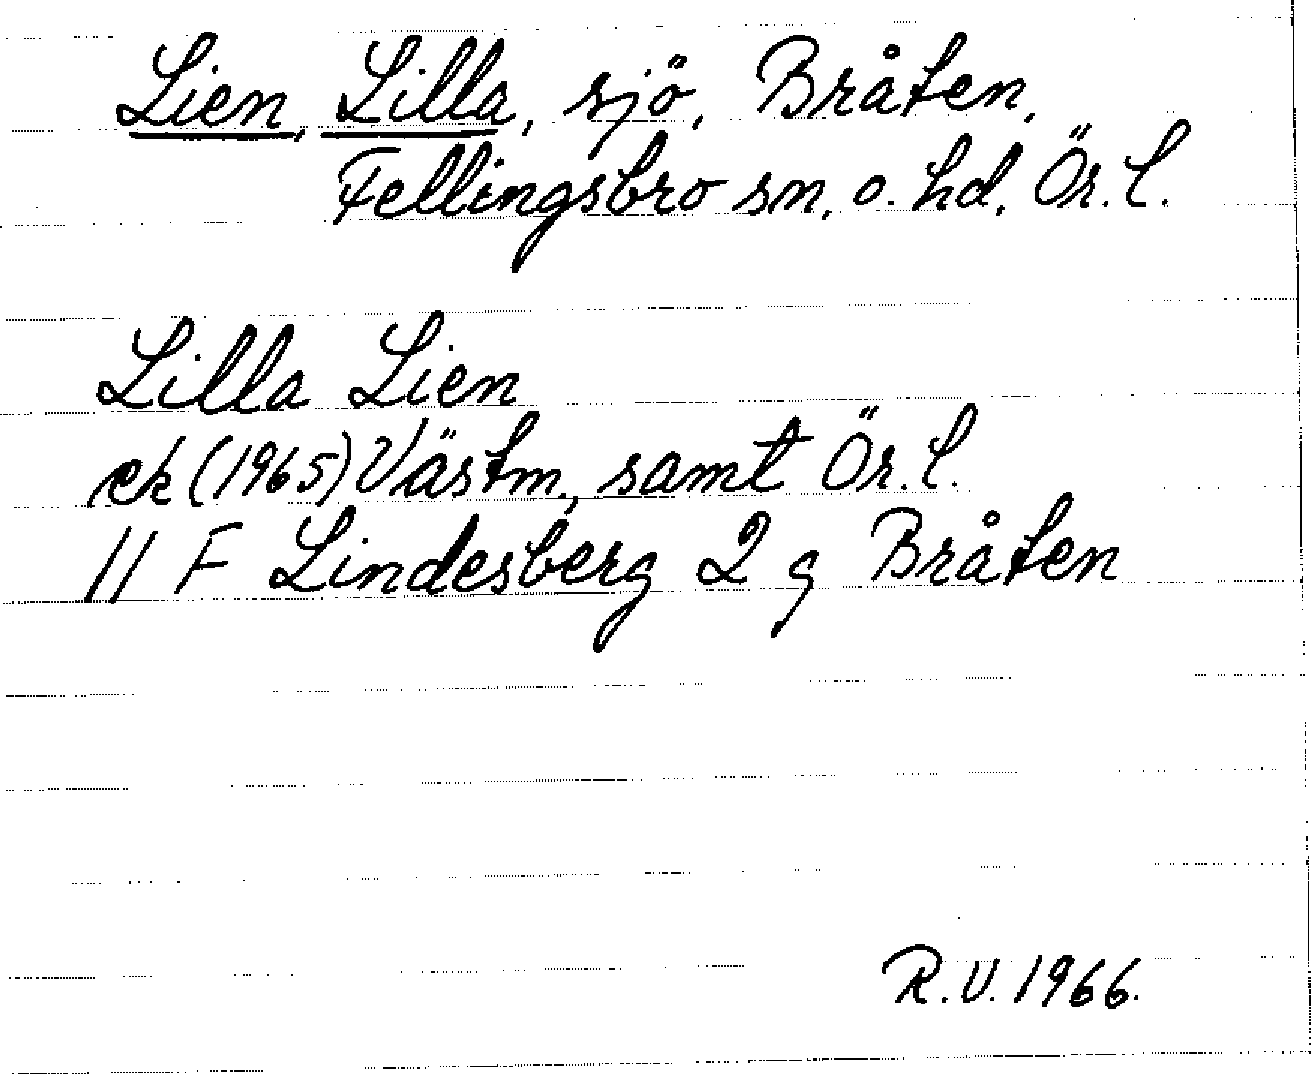 Lien, Lilla, sjö, Bråten,
Fellingsbro sn. o. hd. Ör. l.
Lilla Lien
ek (1965) Västm., samt Ör. l.
11 F Lindesberg 2 g Bråten
R.V. 1966.